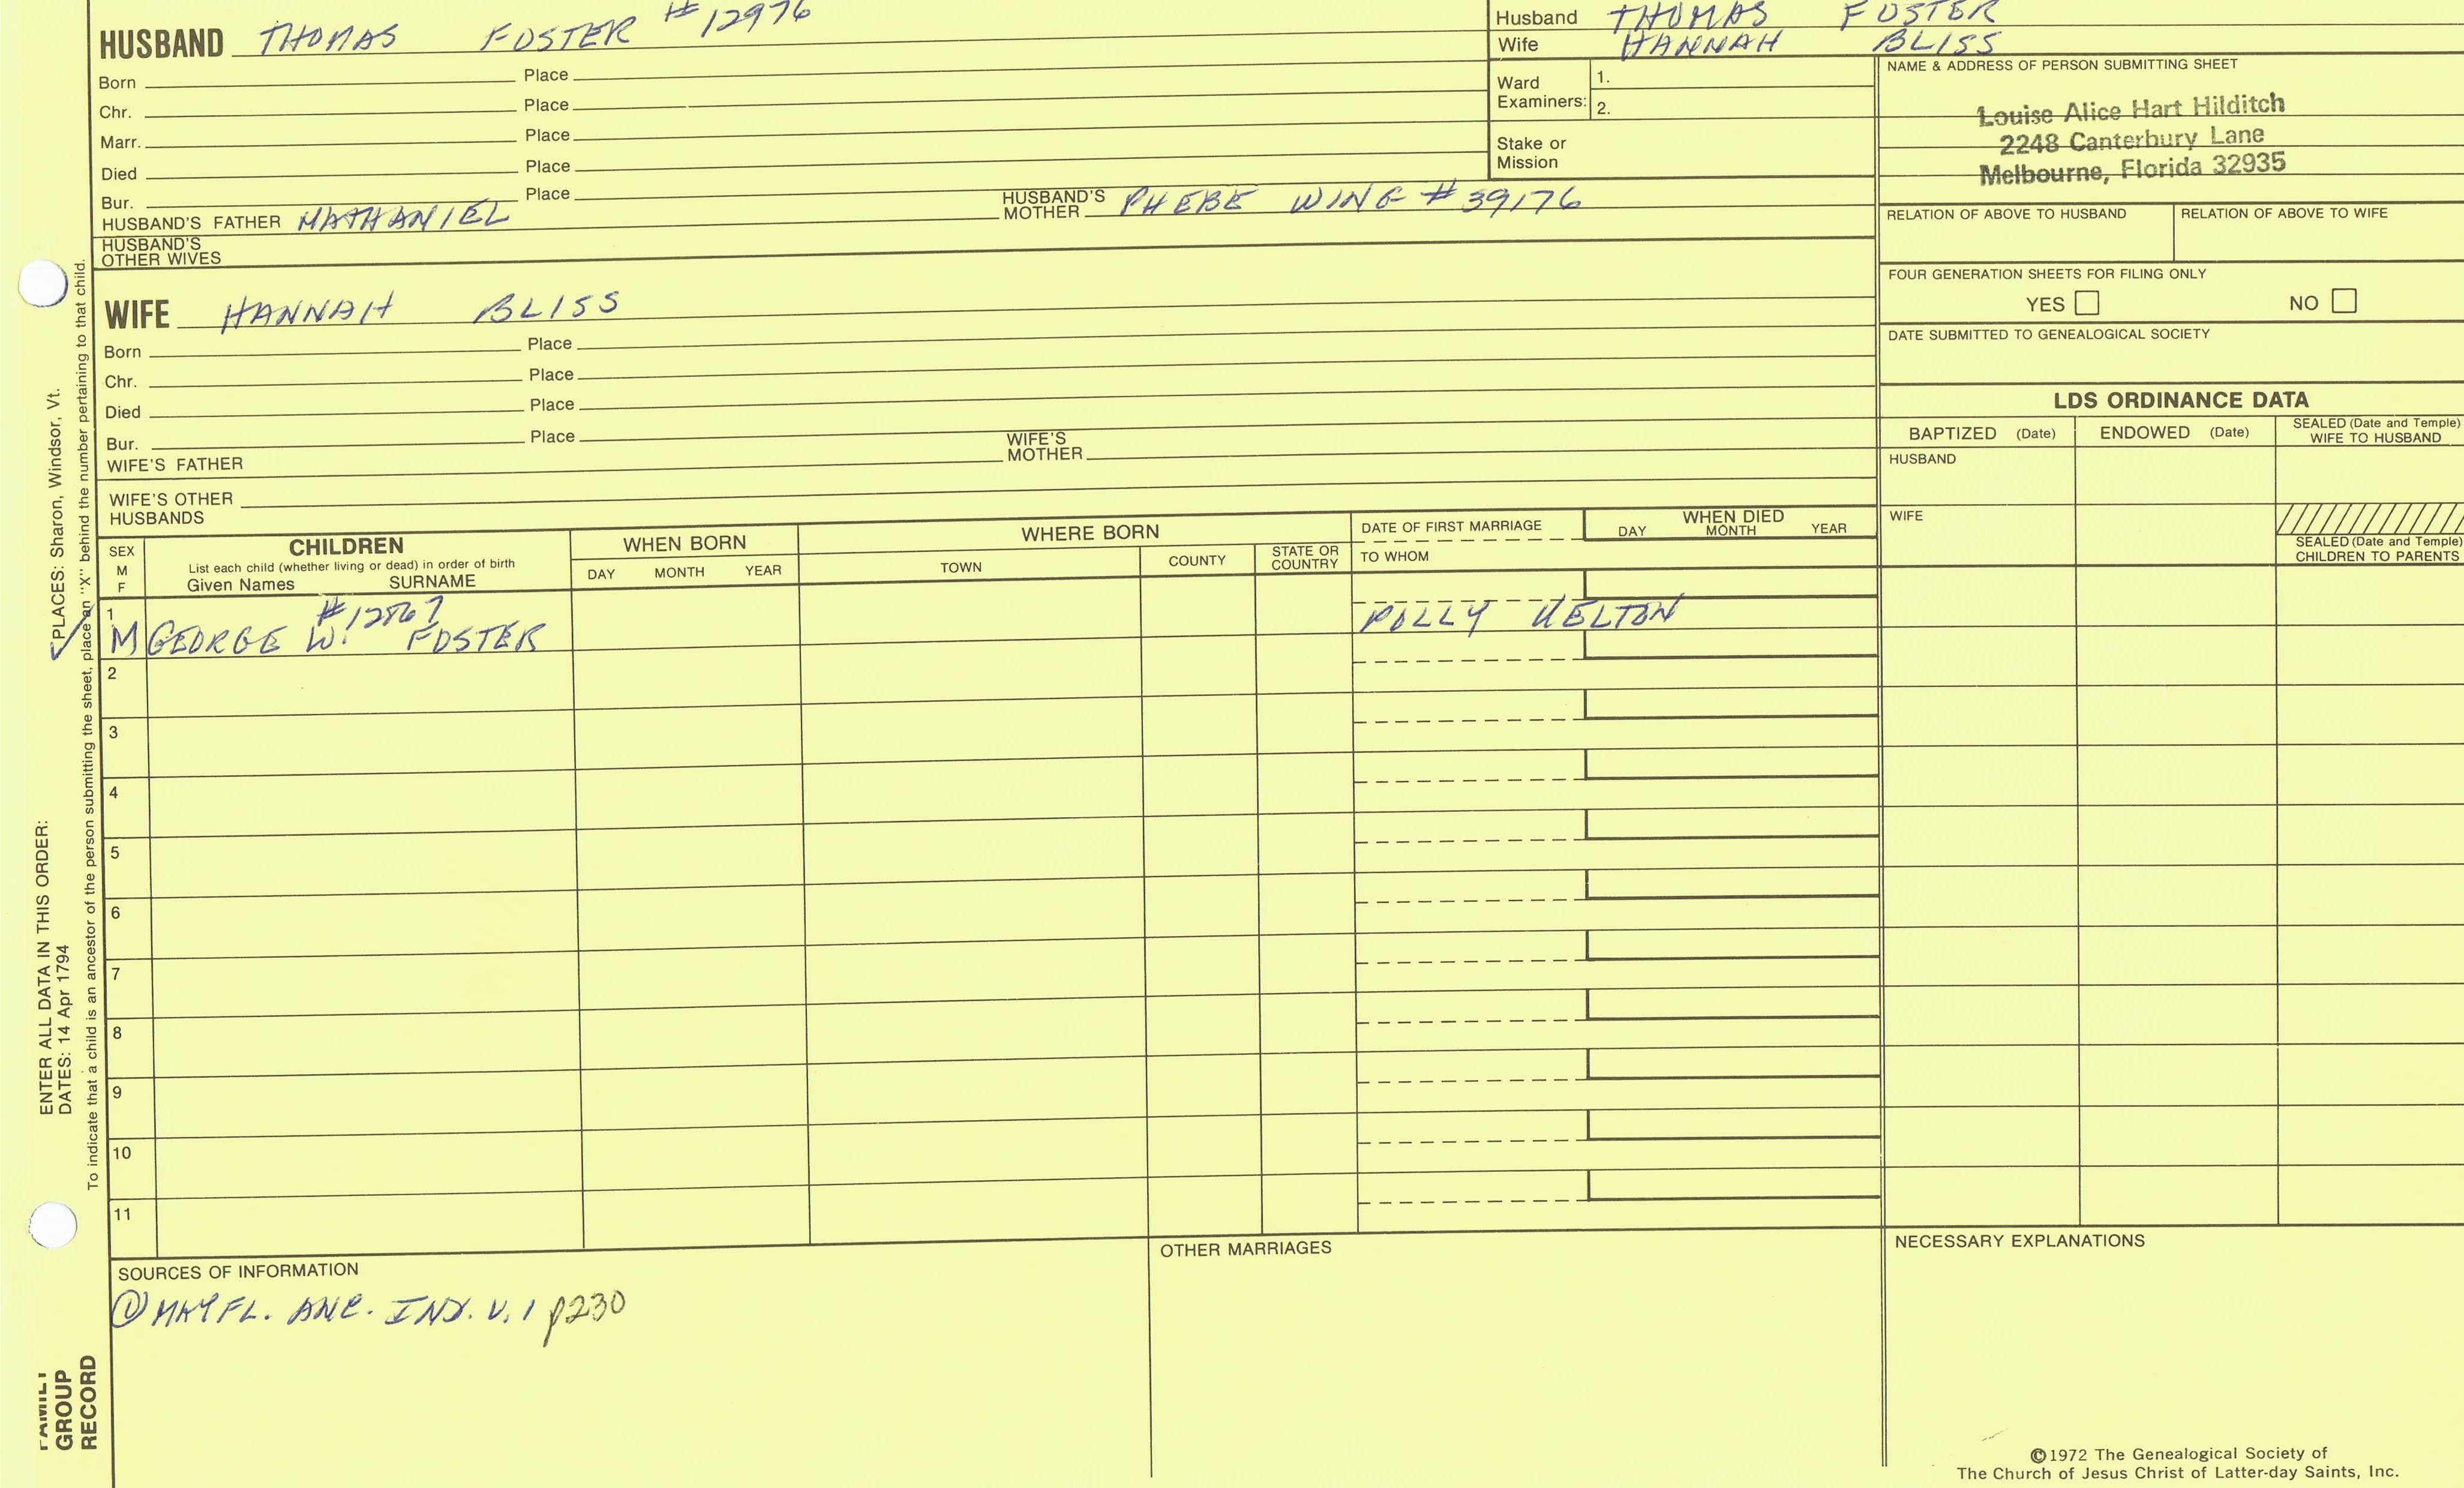 HUSBAND THOMAS FOSTER #12976
Born Place
Chr. Place
Marr. Place
Died Place
Bur. Place
HUSBAND'S FATHER NATHANIEL HUSBAND'S MOTHER PHEBE WING #39176
HUSBAND'S OTHER WIVES
Husband THOMAS FOSTER
Wife HANNAH BLISS
Ward Examiners: 1.
2.
Stake or Mission
NAME & ADDRESS OF PERSON SUBMITTING SHEET
Louise Alice Hart Hilditch
2248 Canterbury Lane
Melbourne, Florida 32935
RELATION OF ABOVE TO HUSBAND RELATION OF ABOVE TO WIFE
FOUR GENERATION SHEETS FOR FILING ONLY
YES NO
DATE SUBMITTED TO GENEALOGICAL SOCIETY
WIFE HANNAH BLISS
Born Place
Chr. Place
Died Place
Bur. Place
WIFE'S FATHER WIFE'S MOTHER
WIFE'S OTHER HUSBANDS
LDS ORDINANCE DATA
BAPTIZED (Date) ENDOWED (Date) SEALED (Date and Temple) WIFE TO HUSBAND
HUSBAND
WIFE
SEALED (Date and Temple) CHILDREN TO PARENTS
SEX M F
CHILDREN
List each child (whether living or dead) in order of birth
Given Names SURNAME
WHEN BORN
DAY MONTH YEAR
WHERE BORN
TOWN COUNTY STATE OR COUNTRY
DATE OF FIRST MARRIAGE
TO WHOM
WHEN DIED
DAY MONTH YEAR
1 #12867
M GEORGE W. FOSTER POLLY
2
3
4
5
6
7
8
9
10
11
SOURCES OF INFORMATION
① MAYFL. ANC. INDX. V. 1 p230
OTHER MARRIAGES
NECESSARY EXPLANATIONS
©1972 The Genealogical Society of
The Church of Jesus Christ of Latter-day Saints, Inc.
ENTER ALL DATA IN THIS ORDER:
DATES: 14 Apr 1794 ✓PLACES: Sharon, Windsor, Vt.
To indicate that a child is an ancestor of the person submitting the sheet, place an "X" behind the number pertaining to that child.
FAMILY
GROUP
RECORD